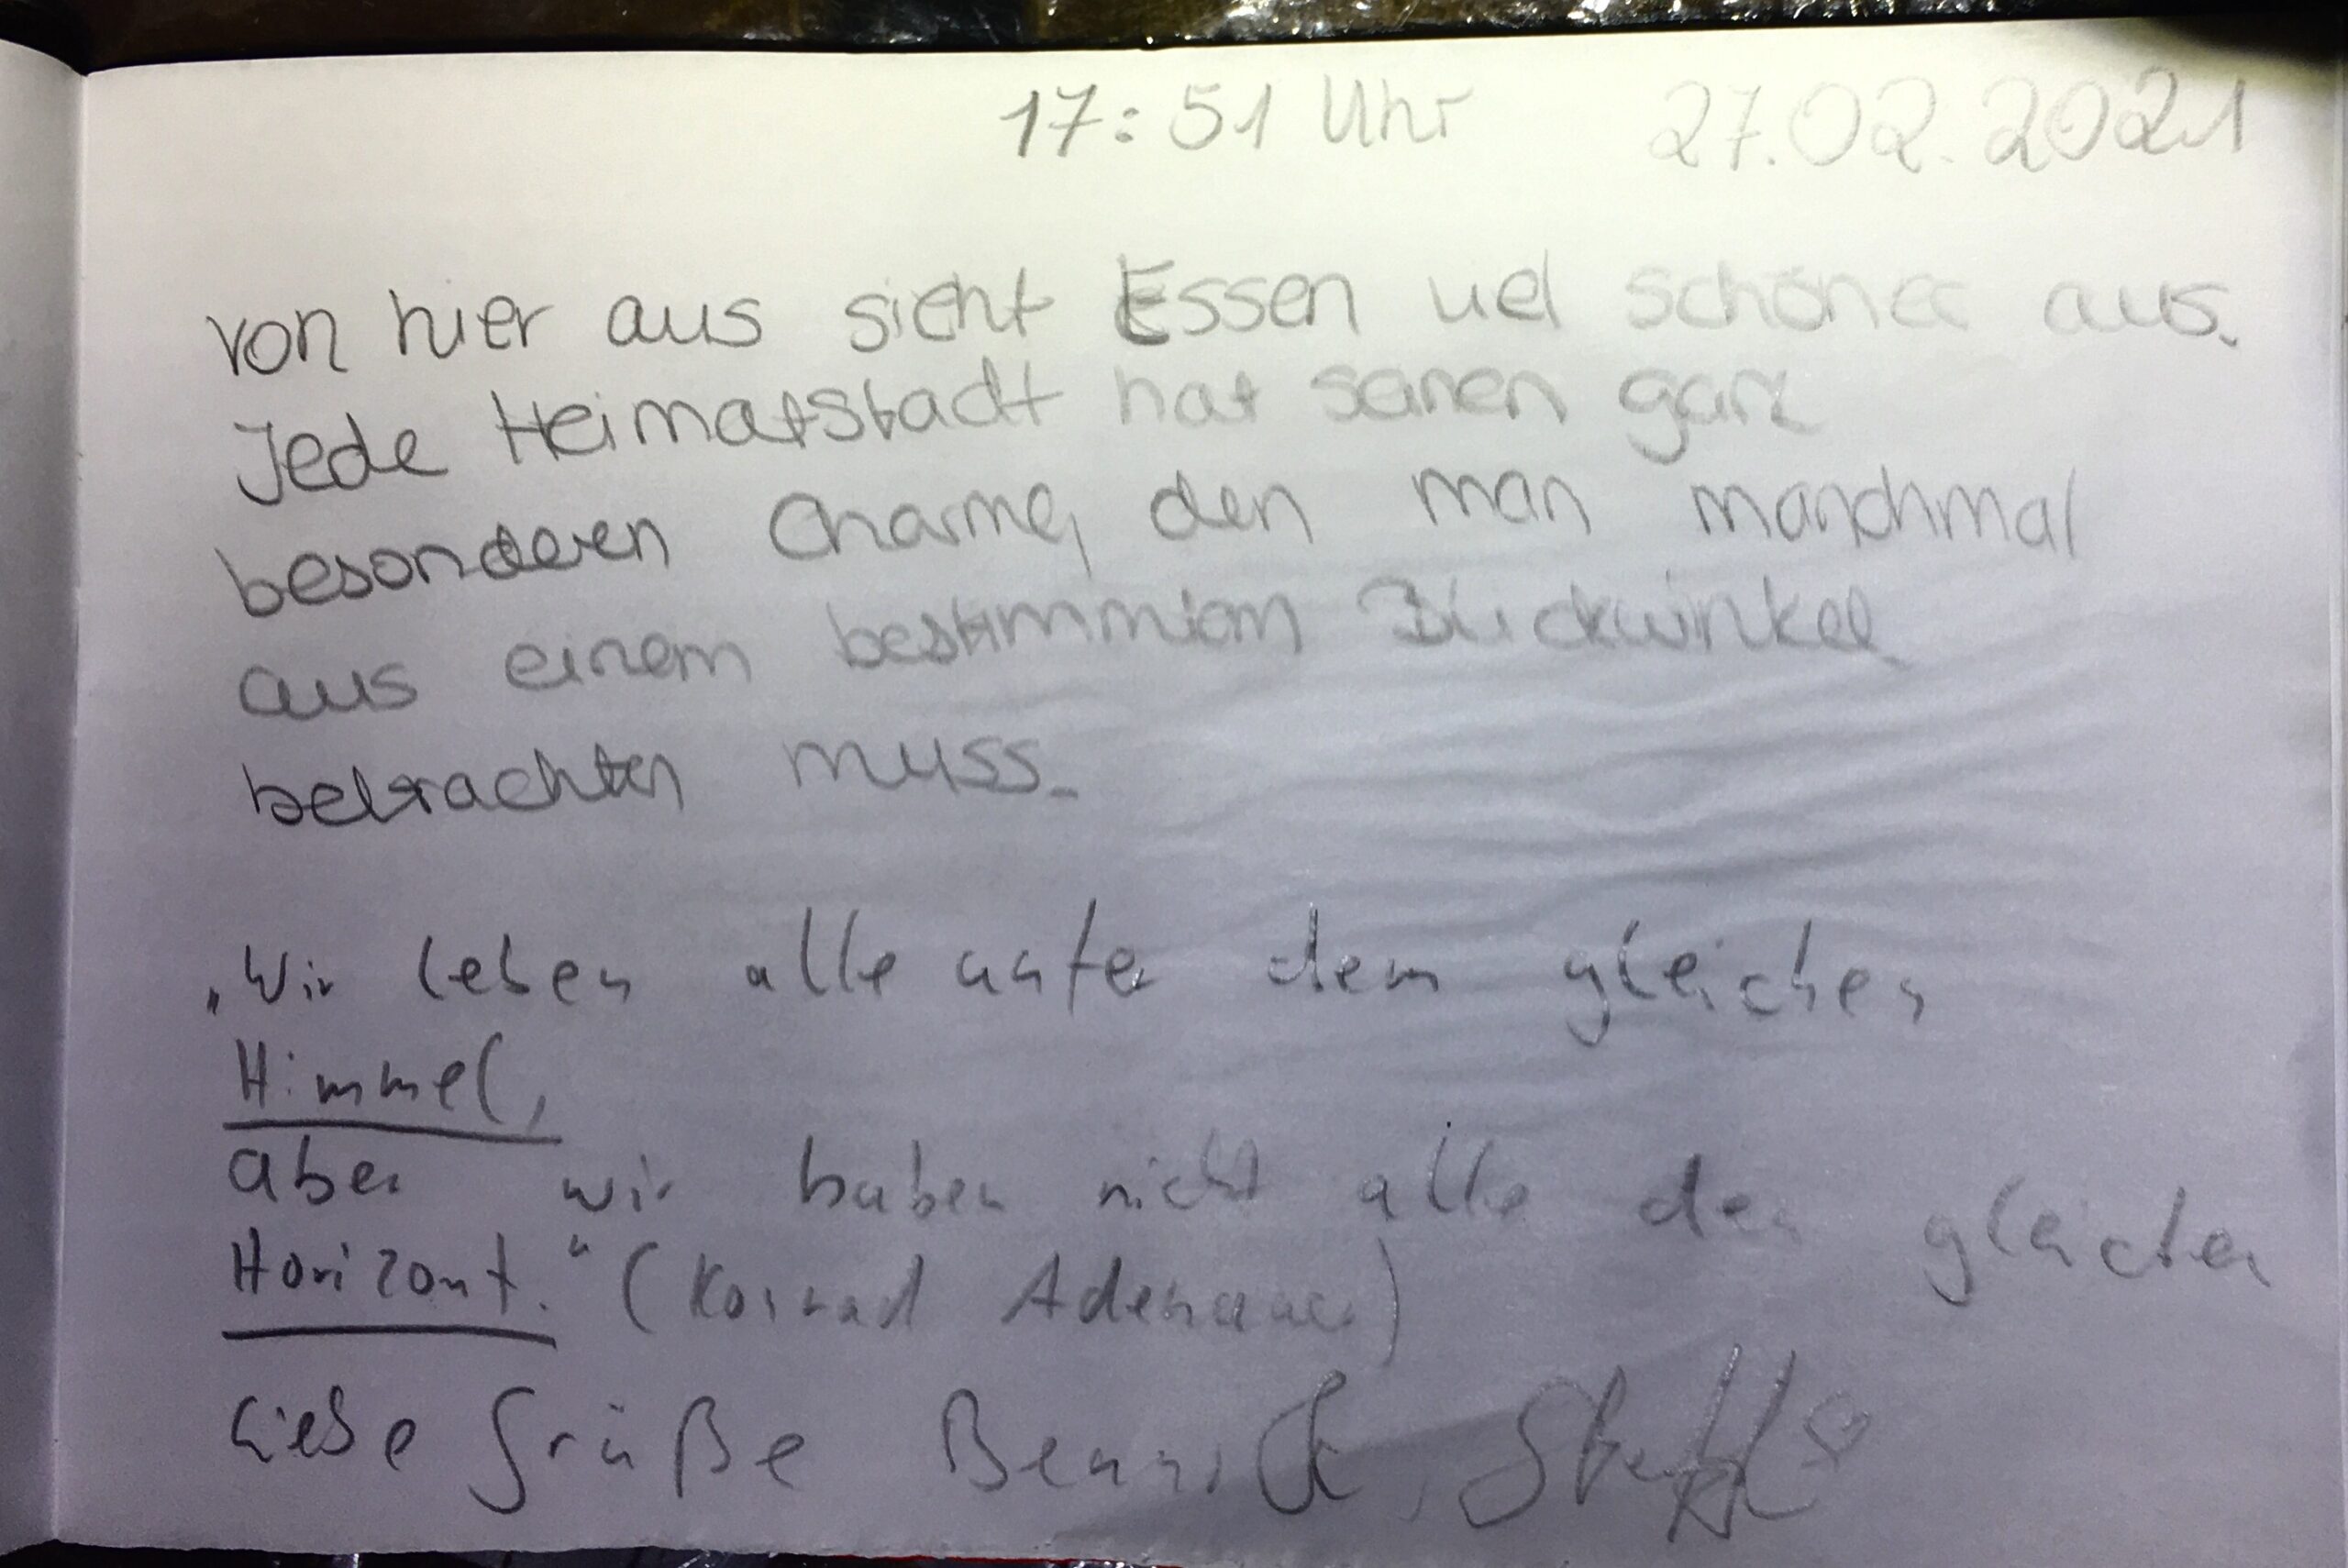 17:51 Uhr 27.02.2021
von hier aus sieht Essen viel schöner aus.
Jede Heimatstadt hat seinen ganz
besonderen Charme, den man manchmal
aus einem bestimmten Blickwinkel
betrachten muss.
„Wir leben alle unter dem gleichen
Himmel,
aber wir haben nicht alle den gleichen
Horizont." (Konrad Adenauer)
Liebe Grüße